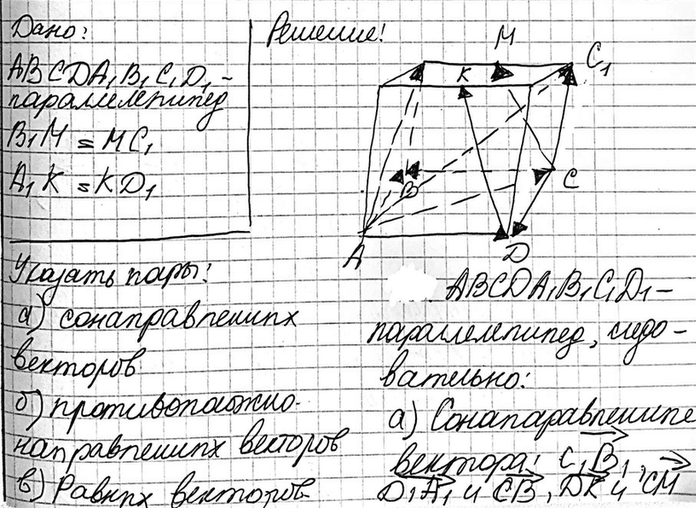 Дано:
ABCDA₁B₁C₁D₁ -
параллелепипед
B₁M = MC₁
A₁K = KD₁
Решение!
M
C₁
K
B
C
A
D
Указать пары:
а) сонаправленных
векторов
б) противоположно-
направленных векторов
в) Равных векторов
ABCDA₁B₁C₁D₁ -
параллелепипед, следо-
вательно:
а) Сонаправленные
вектора: C₁B₁,
D₁A₁ и CB, DK и CM